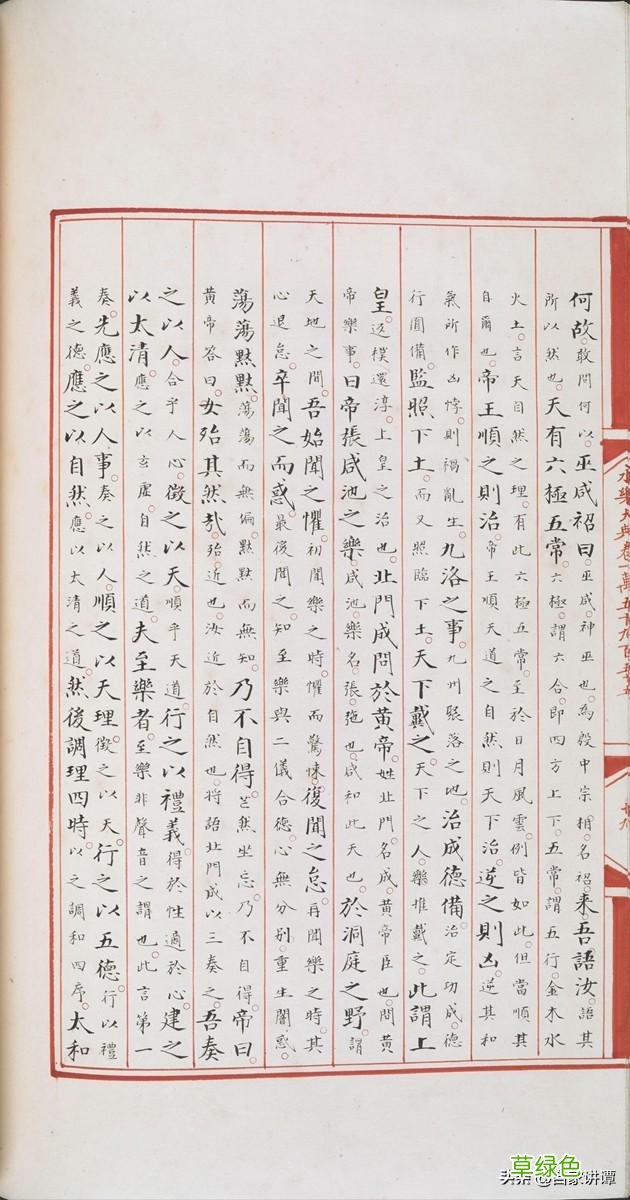 何故。敢問何以。巫咸祒曰。巫咸神巫也。為殷中宗相名祒。來。吾語汝。語其
所以然也。天有六極五常。六極謂六合即四方上下。五常謂五行金木水
火土。言天自然之理。有此六極五常。至於日月風雲例皆如此。但當順其
自爾也。帝王順之則治。帝王順天道之自然則天下治。逆之則凶。逆其和
氣所作凶悖。則禍亂生。九洛之事。九州聚落之地。治成德備。治定功成德
行圓備。監照下土。而又照臨下土。天下戴之。天下之人樂推戴之。此謂上
皇。返樸還淳。上皇之治也。北門成問於黃帝。姓北門名成。黃帝臣也。問黃
帝樂事。曰帝張咸池之樂。咸池樂名。張施也。咸和此天也。於洞庭之野。謂
天地之間。吾始聞之懼。初聞樂之時懼而驚悚。復聞之怠。再聞樂之時。其
心退怠。卒聞之而惑。最後聞之。知至樂與二儀合德。心無分別。重生闇惑。
蕩蕩默默。蕩蕩而無偏。默默而無知。乃不自得。芒然坐忘。乃不自得。帝曰
黃帝答曰。女殆其然哉。殆近也。汝近於自然也。將語北門成以三奏之。吾奏
之以人。合乎人心。徵之以天。順乎天道。行之以禮義。得於性適於心。建之
以太清。應之以玄虛自然之道。夫至樂者。至樂非聲音之謂也。此言第一
奏。先應之以人事。奏之以人。順之以天理。徵之以天。行之以五德。行以禮
義之德。應之以自然。應以太清之道。然後調理四時。以之調和四序。太和
草绿色
头条 @百家讲谭